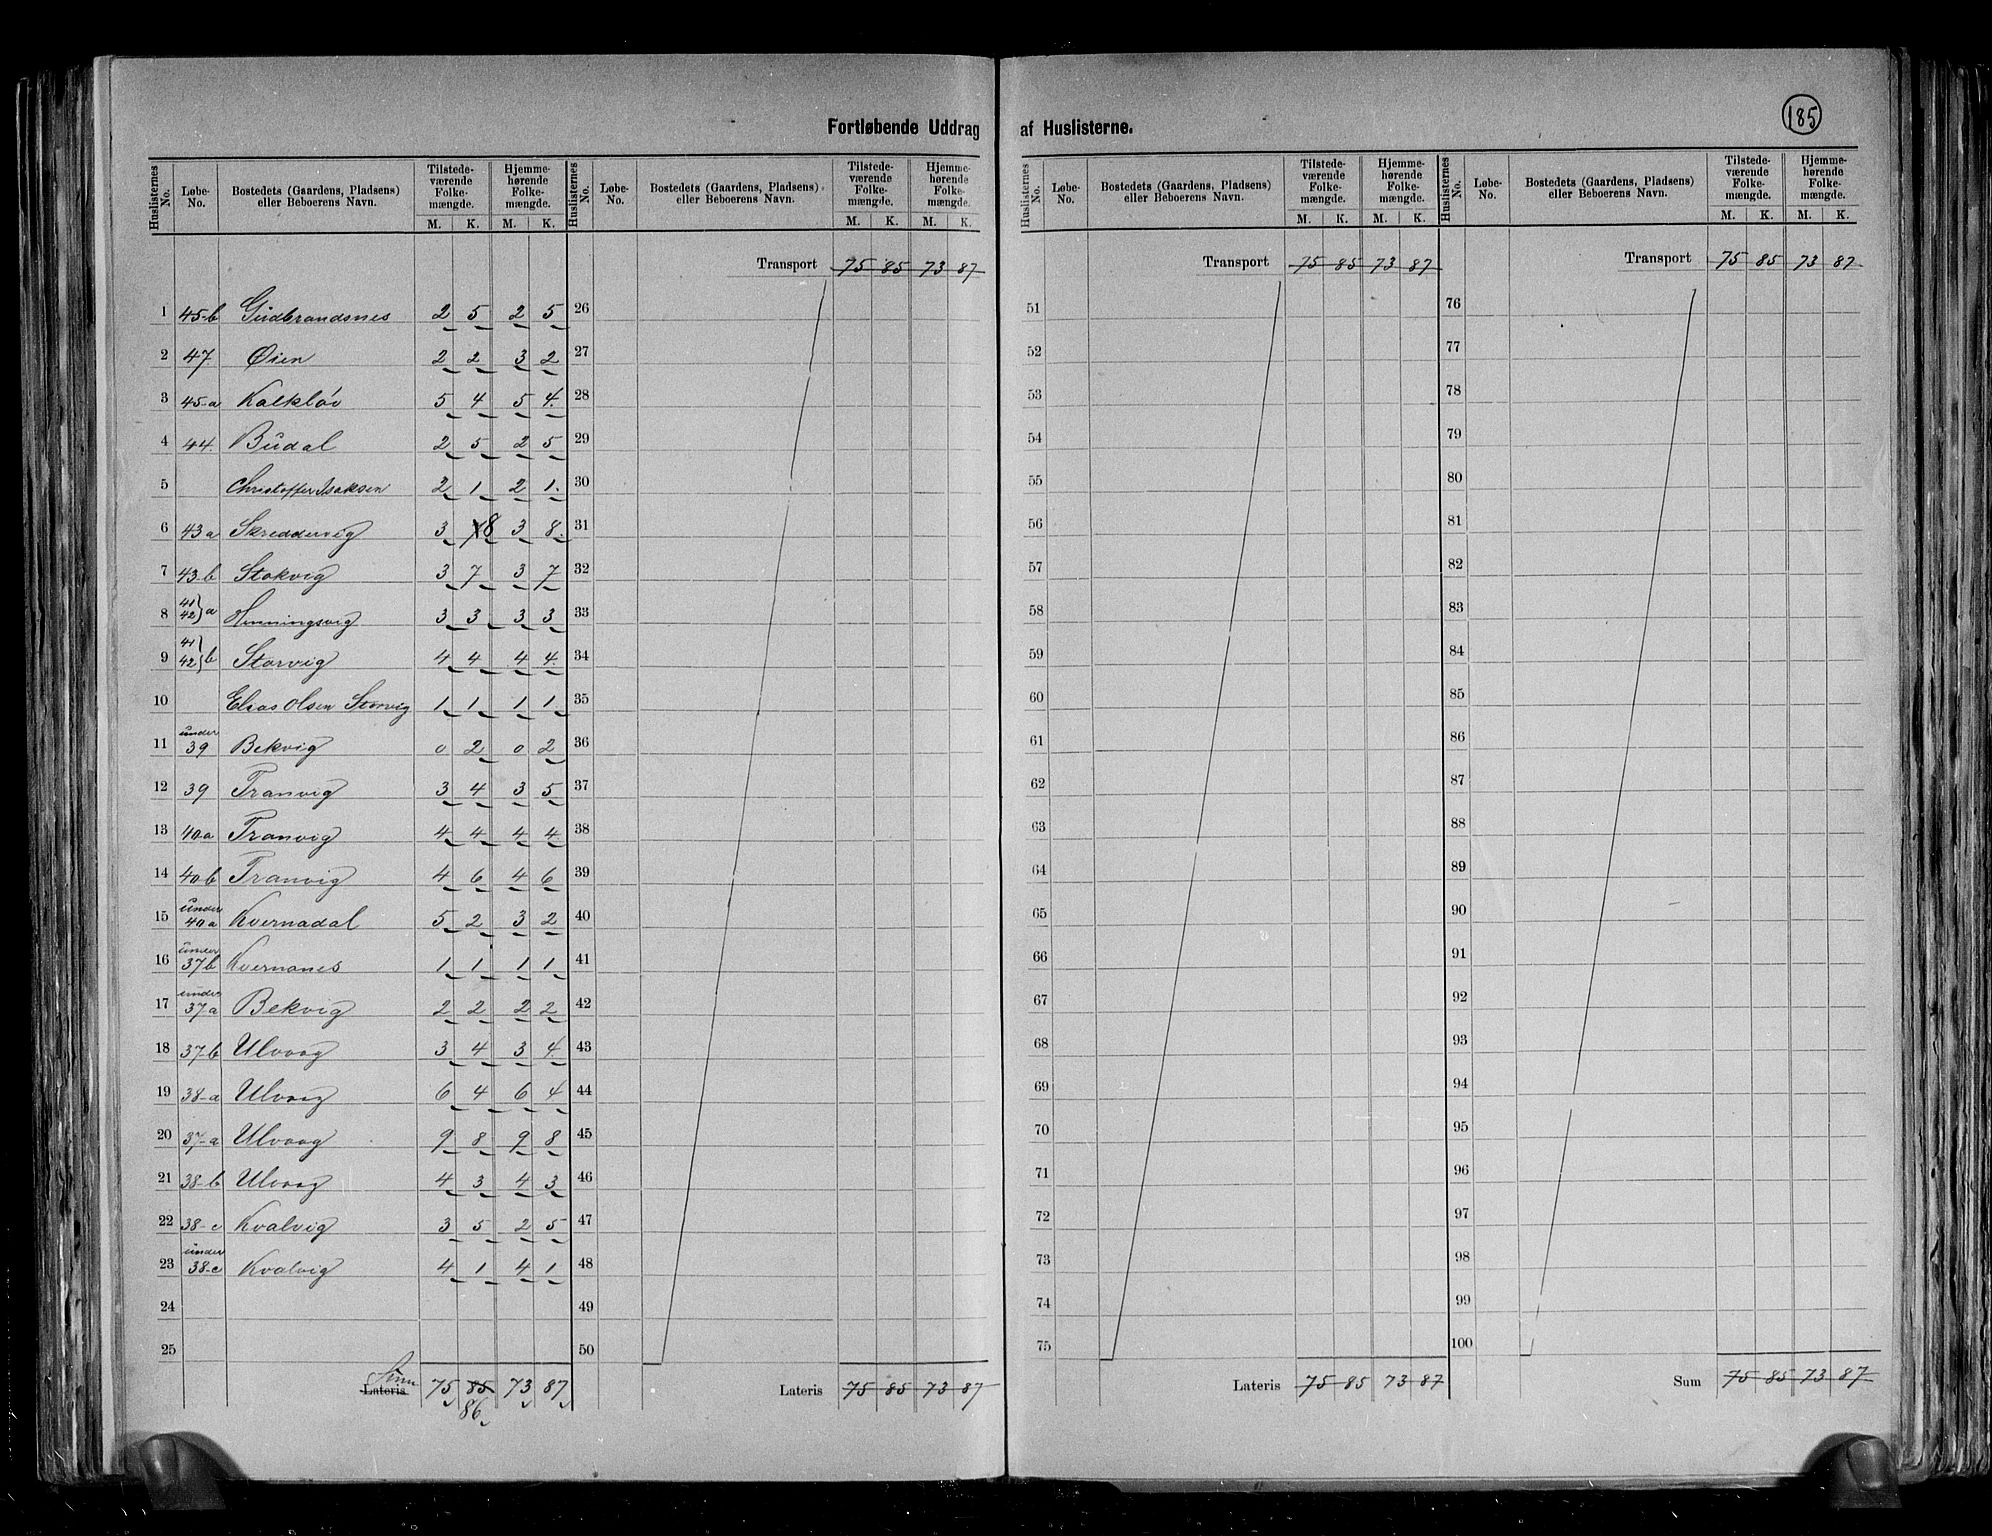 Fortløbende Uddrag af Huslisterne.
185
Huslisternes No. | Løbe-No. | Bostedets (Gaardens, Pladsens) eller Beboerens Navn. | Tilstede-værende Folke-mængde. M. K. | Hjemme-hørende Folke-mængde. M. K.
Huslisternes No. | Løbe-No. | Bostedets (Gaardens, Pladsens) eller Beboerens Navn. | Tilstede-værende Folke-mængde. M. K. | Hjemme-hørende Folke-mængde. M. K.
Huslisternes No. | Løbe-No. | Bostedets (Gaardens, Pladsens) eller Beboerens Navn. | Tilstede-værende Folke-mængde. M. K. | Hjemme-hørende Folke-mængde. M. K.
Huslisternes No. | Løbe-No. | Bostedets (Gaardens, Pladsens) eller Beboerens Navn. | Tilstede-værende Folke-mængde. M. K. | Hjemme-hørende Folke-mængde. M. K.
Transport 75 85 73 87 Transport 75 85 73 87 Transport 75 85 73 87
1 45-b Gudbrandsnes 2 5 2 5 26 51 76
2 47 Øien 2 2 3 2 27 52 77
3 45-a Kalkløv 5 4 5 4 28 53 78
4 44. Budal 2 5 2 5 29 54 79
5 Christoffer Isaksen 2 1 2 1 30 55 80
6 43a Skreddervig 3 8 3 8 31 56 81
7 43-b Stokvig 3 7 3 7 32 57 82
8 41 42 } a Henningsvig 3 3 3 3 33 58 83
9 41 42 } b Storvig 4 4 4 4 34 59 84
10 Elias Olsen Storvig 1 1 1 1 35 60 85
11 under 39 Bekvig 0 2 0 2 36 61 86
12 39 Tranvig 3 4 3 5 37 62 87
13 40a Tranvig 4 4 4 4 38 63 88
14 40-b Tranvig 4 6 4 6 39 64 89
15 under 40a Kvernadal 5 2 3 2 40 65 90
16 under 37b Kvernanes 1 1 1 1 41 66 91
17 under 37a Bekvig 2 2 2 2 42 67 92
18 37-b Ulvaag 3 4 3 4 43 68 93
19 38-a Ulvaag 6 4 6 4 44 69 94
20 37-a Ulvaag 9 8 9 8 45 70 95
21 38-b Ulvaag 4 3 4 3 46 71 96
22 38-c Kvalvig 3 5 2 5 47 72 97
23 under 38-c Kvalvig 4 1 4 1 48 73 98
24 49 74 99
25 50 75 100
Sum
Lateris 75 85 73 87 Lateris 75 85 73 87 Lateris 75 85 73 87 Sum 75 85 73 87
86